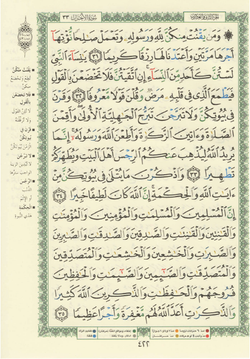 الجزء الثاني والعشرون سُورَةُ الأَحْزَابِ ٣٣
۞ وَمَن يَقْنُتْ مِنكُنَّ لِلَّهِ وَرَسُولِهِۦ وَتَعْمَلْ صَٰلِحًا نُّؤْتِهَآ
أَجْرَهَا مَرَّتَيْنِ وَأَعْتَدْنَا لَهَا رِزْقًا كَرِيمًا ٣١ يَٰنِسَآءَ ٱلنَّبِىِّ
لَسْتُنَّ كَأَحَدٍ مِّنَ ٱلنِّسَآءِ إِنِ ٱتَّقَيْتُنَّ فَلَا تَخْضَعْنَ بِٱلْقَوْلِ
فَيَطْمَعَ ٱلَّذِى فِى قَلْبِهِۦ مَرَضٌ وَقُلْنَ قَوْلًا مَّعْرُوفًا ٣٢ وَقَرْنَ
فِى بُيُوتِكُنَّ وَلَا تَبَرَّجْنَ تَبَرُّجَ ٱلْجَٰهِلِيَّةِ ٱلْأُولَىٰ وَأَقِمْنَ
ٱلصَّلَوٰةَ وَءَاتِينَ ٱلزَّكَوٰةَ وَأَطِعْنَ ٱللَّهَ وَرَسُولَهُۥٓ إِنَّمَا
يُرِيدُ ٱللَّهُ لِيُذْهِبَ عَنكُمُ ٱلرِّجْسَ أَهْلَ ٱلْبَيْتِ وَيُطَهِّرَكُمْ
تَطْهِيرًا ٣٣ وَٱذْكُرْنَ مَا يُتْلَىٰ فِى بُيُوتِكُنَّ مِنْ
ءَايَٰتِ ٱللَّهِ وَٱلْحِكْمَةِ إِنَّ ٱللَّهَ كَانَ لَطِيفًا خَبِيرًا ٣٤
إِنَّ ٱلْمُسْلِمِينَ وَٱلْمُسْلِمَٰتِ وَٱلْمُؤْمِنِينَ وَٱلْمُؤْمِنَٰتِ
وَٱلْقَٰنِتِينَ وَٱلْقَٰنِتَٰتِ وَٱلصَّٰدِقِينَ وَٱلصَّٰدِقَٰتِ وَٱلصَّٰبِرِينَ
وَٱلصَّٰبِرَٰتِ وَٱلْخَٰشِعِينَ وَٱلْخَٰشِعَٰتِ وَٱلْمُتَصَدِّقِينَ
وَٱلْمُتَصَدِّقَٰتِ وَٱلصَّٰٓئِمِينَ وَٱلصَّٰٓئِمَٰتِ وَٱلْحَٰفِظِينَ
فُرُوجَهُمْ وَٱلْحَٰفِظَٰتِ وَٱلذَّٰكِرِينَ ٱللَّهَ كَثِيرًا
وَٱلذَّٰكِرَٰتِ أَعَدَّ ٱللَّهُ لَهُم مَّغْفِرَةً وَأَجْرًا عَظِيمًا ٣٥
٤٢٢